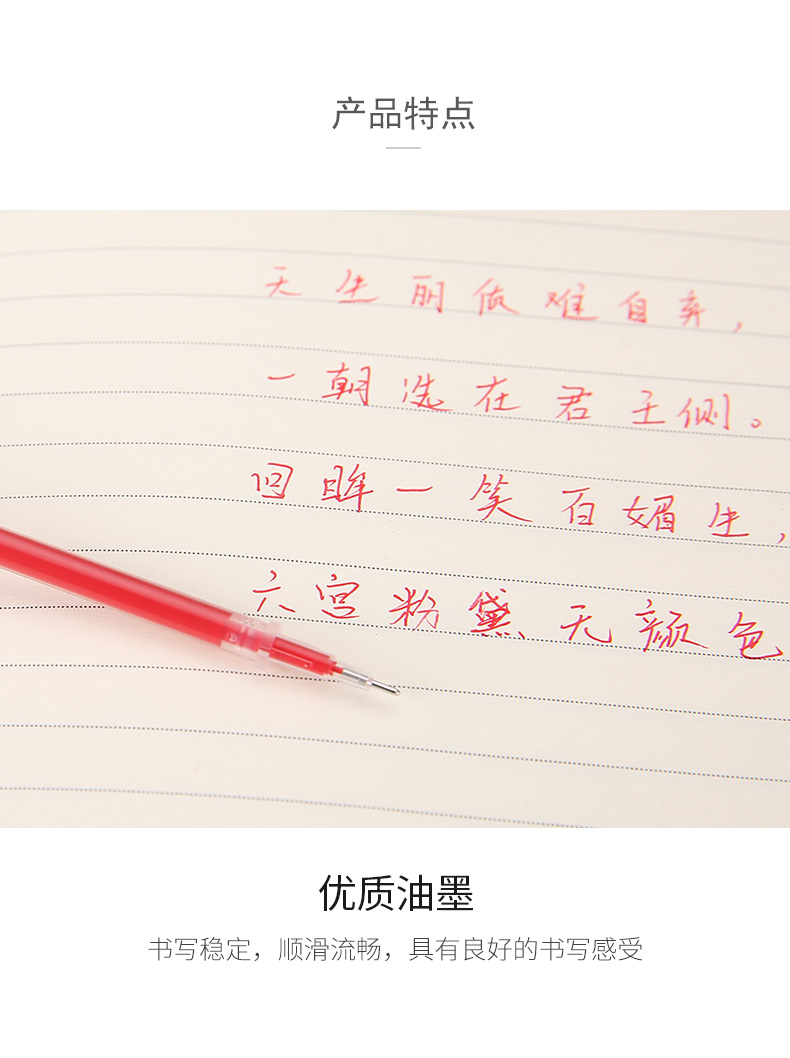 产品特点
天生丽难自弃，
一朝选在君王侧。
回眸一笑百媚生，
六宫粉黛无颜色
优质油墨
书写稳定，顺滑流畅，具有良好的书写感受